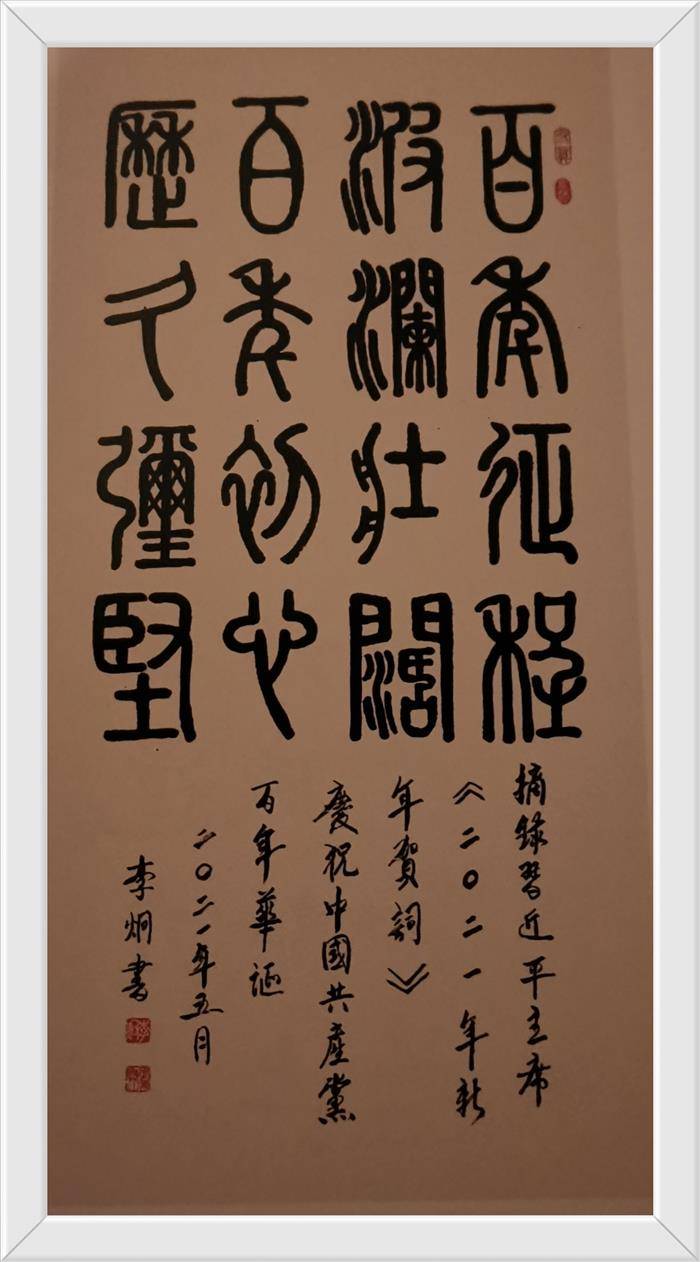 百年征程
波瀾壯闊
百年初心
歷久彌堅
摘錄習近平主席
《二〇二一年新
年賀詞》
慶祝中國共產黨
百年華誕
二〇二一年五月
李炯書